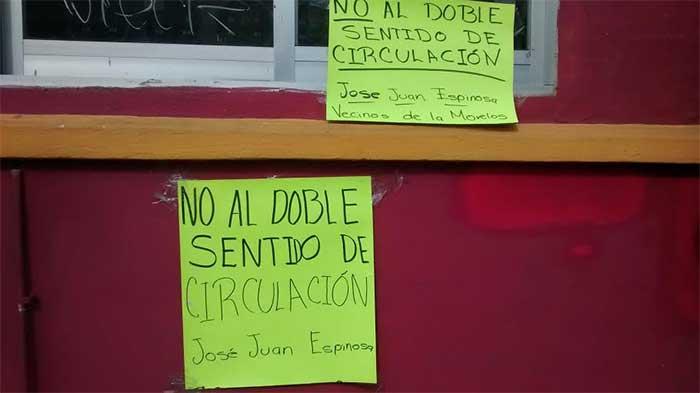 NO AL DOBLE
SENTIDO DE
CIRCULACIÓN
Jose Juan Espinosa
Vecinos de la Morelos
NO AL DOBLE
SENTIDO DE
CIRCULACIÓN
José Juan Espinosa